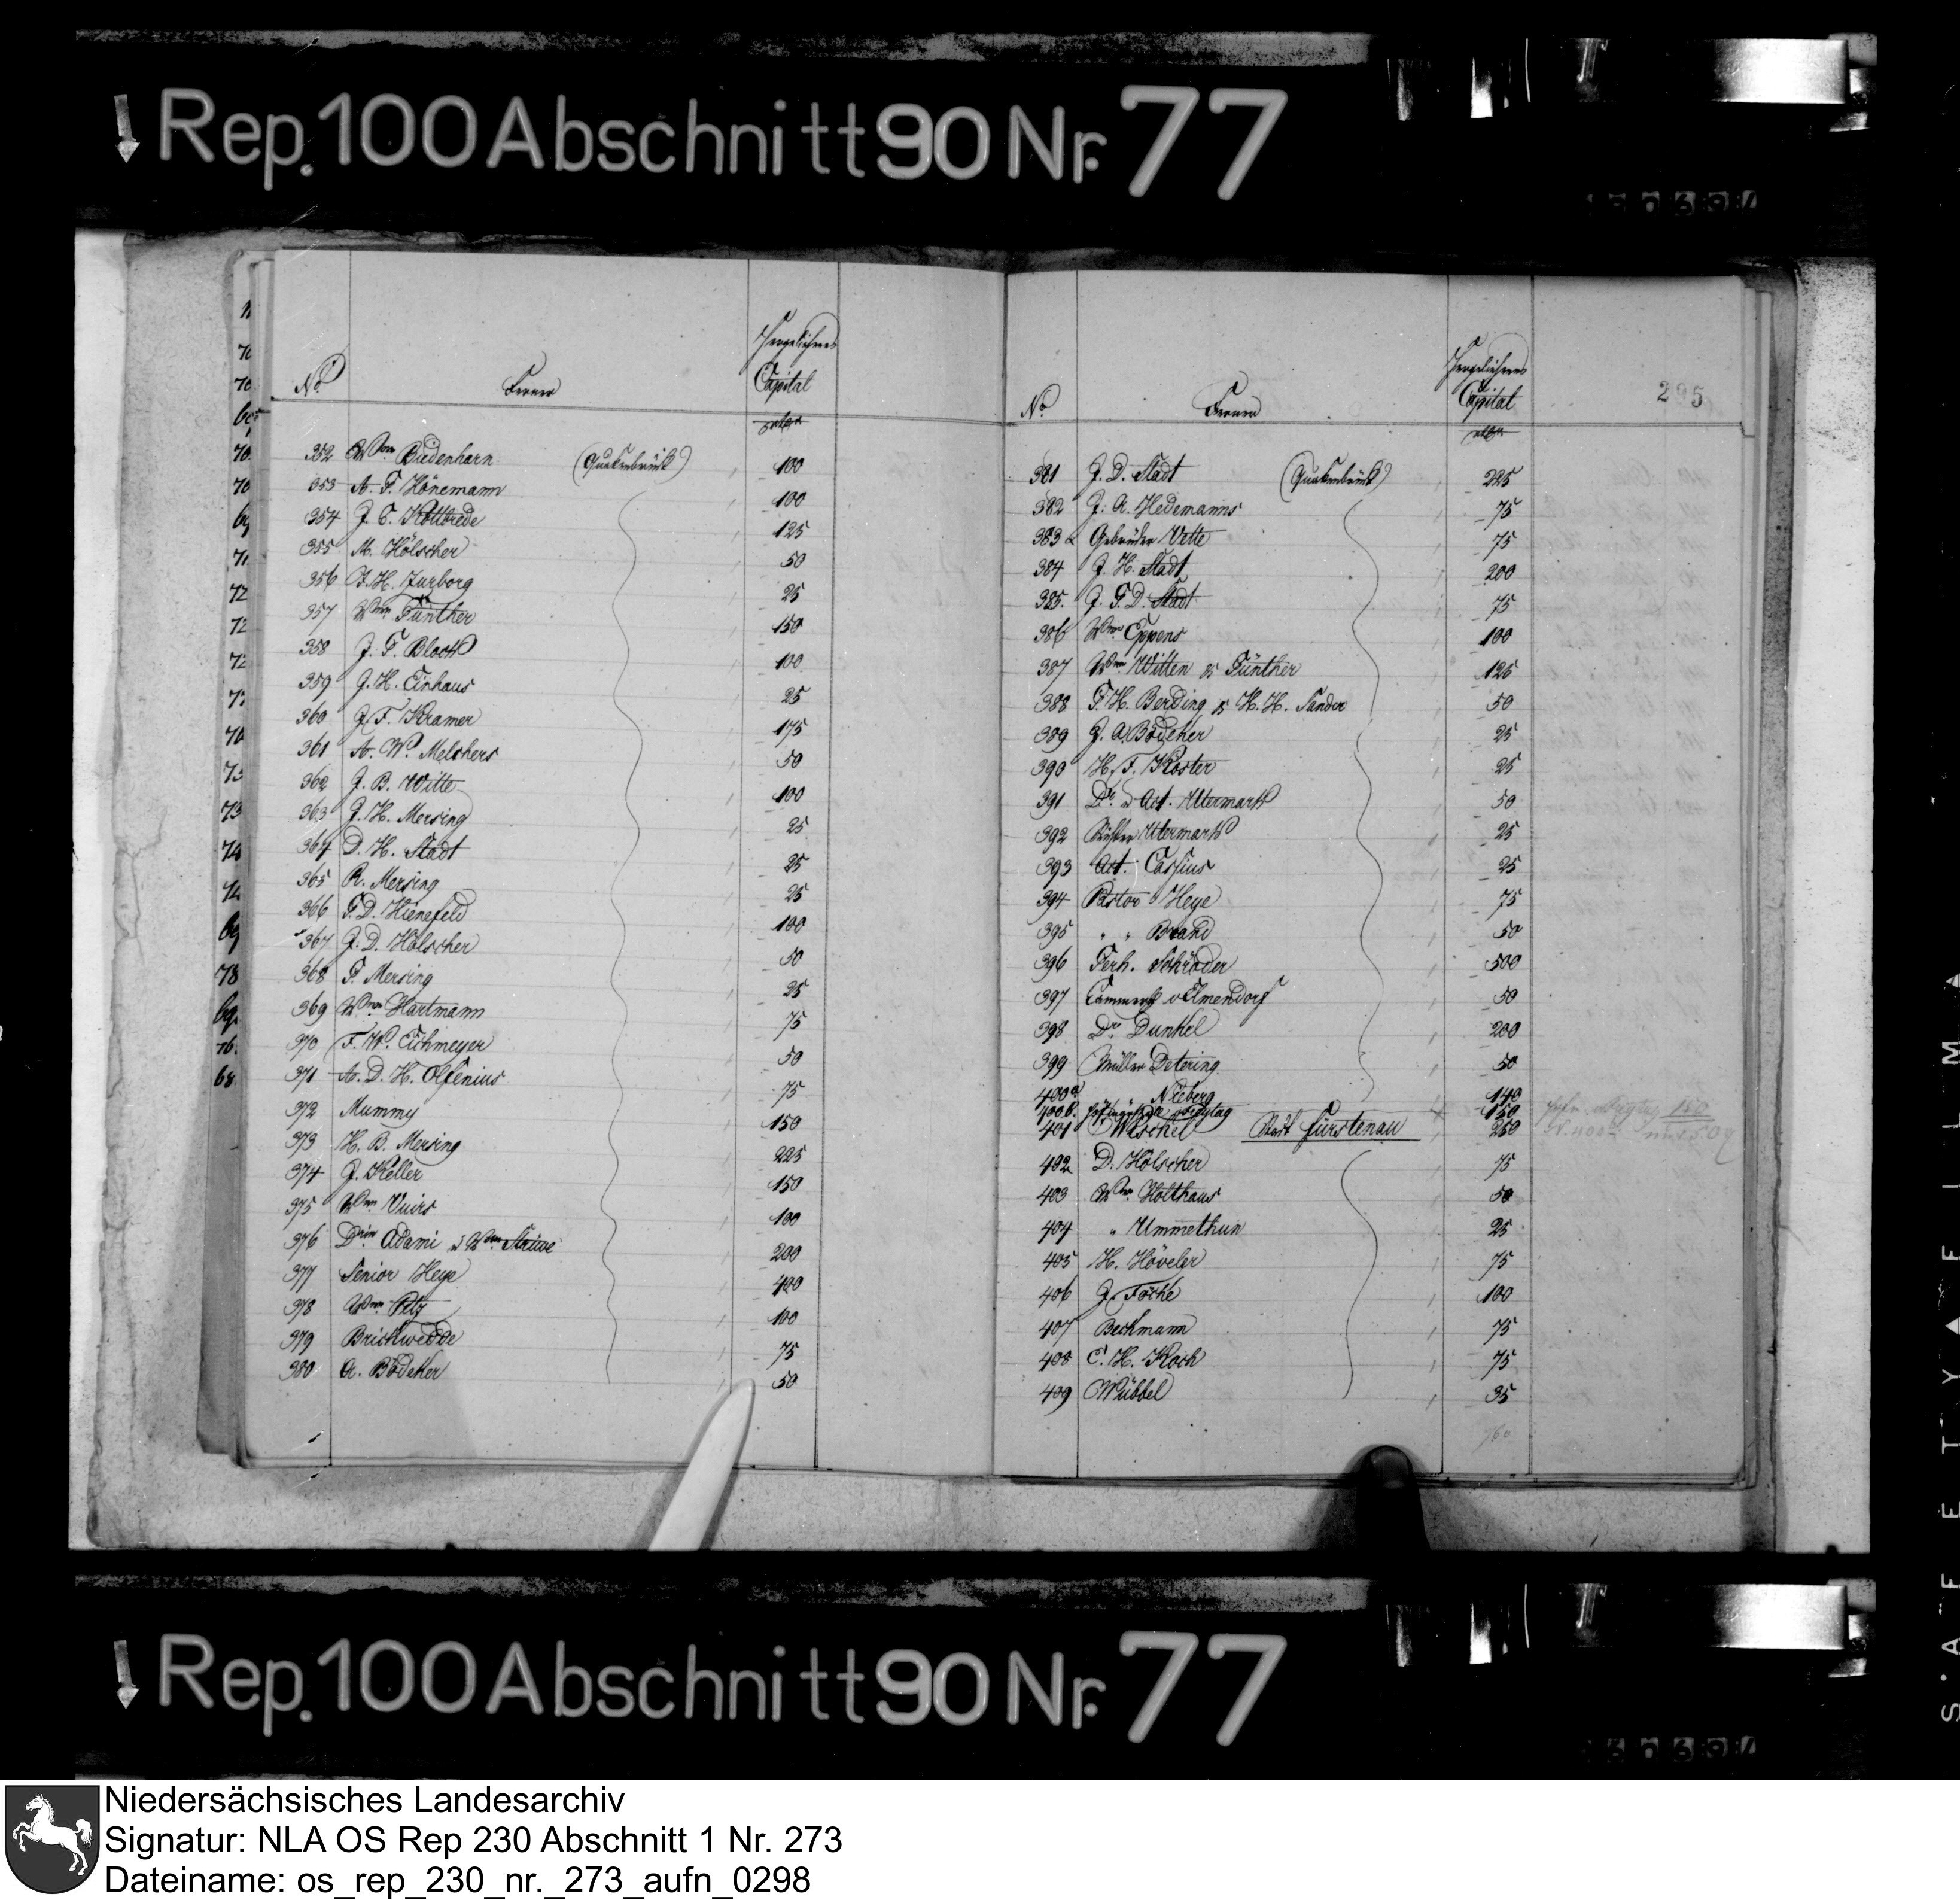 Rep. 100 Abschnitt 90 Nr. 77
No. Ferner Hergeliehenes Capital
352 Wwe Biedenharn (Quakenbrück) 100
353 A. F. Hönemann 100
354 J. C. Kottrede 125
355 M. Hölscher 50
356 J. H. Zurborg 25
357 Wwe Günther 150
358 J. F. Block 100
359 J. H. Einhaus 25
360 J. F. Kramer 175
361 A. W. Melchers 50
362 J. B. Witte 100
363 J. H. Mersing 25
364 D. H. Stadt 25
365 R. Mersing 25
366 F. D. Hienefeld 100
367 J. D. Hölscher 50
368 F. Mersing 25
369 Wwe Hartmann 75
370 F. W. Eichmeyer 50
371 A. D. H. Olfenius 75
372 Mummy 150
373 H. B. Mersing 225
374 J. Keller 150
375 Wwe Vuirs 100
376 Drin Adami u Wwe Struve 200
377 Senior Heye 400
378 Wwe Petz 100
379 Brickwedde 75
380 A. Bödeker 50
295
No. Ferner Hergeliehenes Capital
381 J. D. Stadt (Quakenbrück) 225
382 J. A. Hedemanns 75
383 Gebrüder Vette 75
384 J. H. Stadt 200
385. J. F. D. Stadt 75
386 Wwe Eppens 100
387 Wwe Witten & Günther 125
388 F. H. Berding & H. H. Sander 50
389 J. A. Bödeker 25
390 H. F. Köster 25
391 Dr. u Act. Utermark 50
392 Küster Utermark 25
393 Act. Cassius 25
394 Pastor Heye 75
395 " " Brand 50
396 Ferh. Schröder 500
397 Cammerh v Elmendorf 50
398 Dr. Dunkel 200
399 Müller Detering 50
400a Nieberg 140
400b. 150
401 Weschel Stadt Fürstenau 250
402 D. Hölscher 75
403 Wwe Holthaus 50
404 " Ummethun 25
405 H. Höveler 75
406 J. Foche 100
407 Beckmann 75
408 C. H. Koch 75
409 Wübbel 35
760
Rep. 100 Abschnitt 90 Nr. 77
Niedersächsisches Landesarchiv
Signatur: NLA OS Rep 230 Abschnitt 1 Nr. 273
Dateiname: os_rep_230_nr._273_aufn_0298